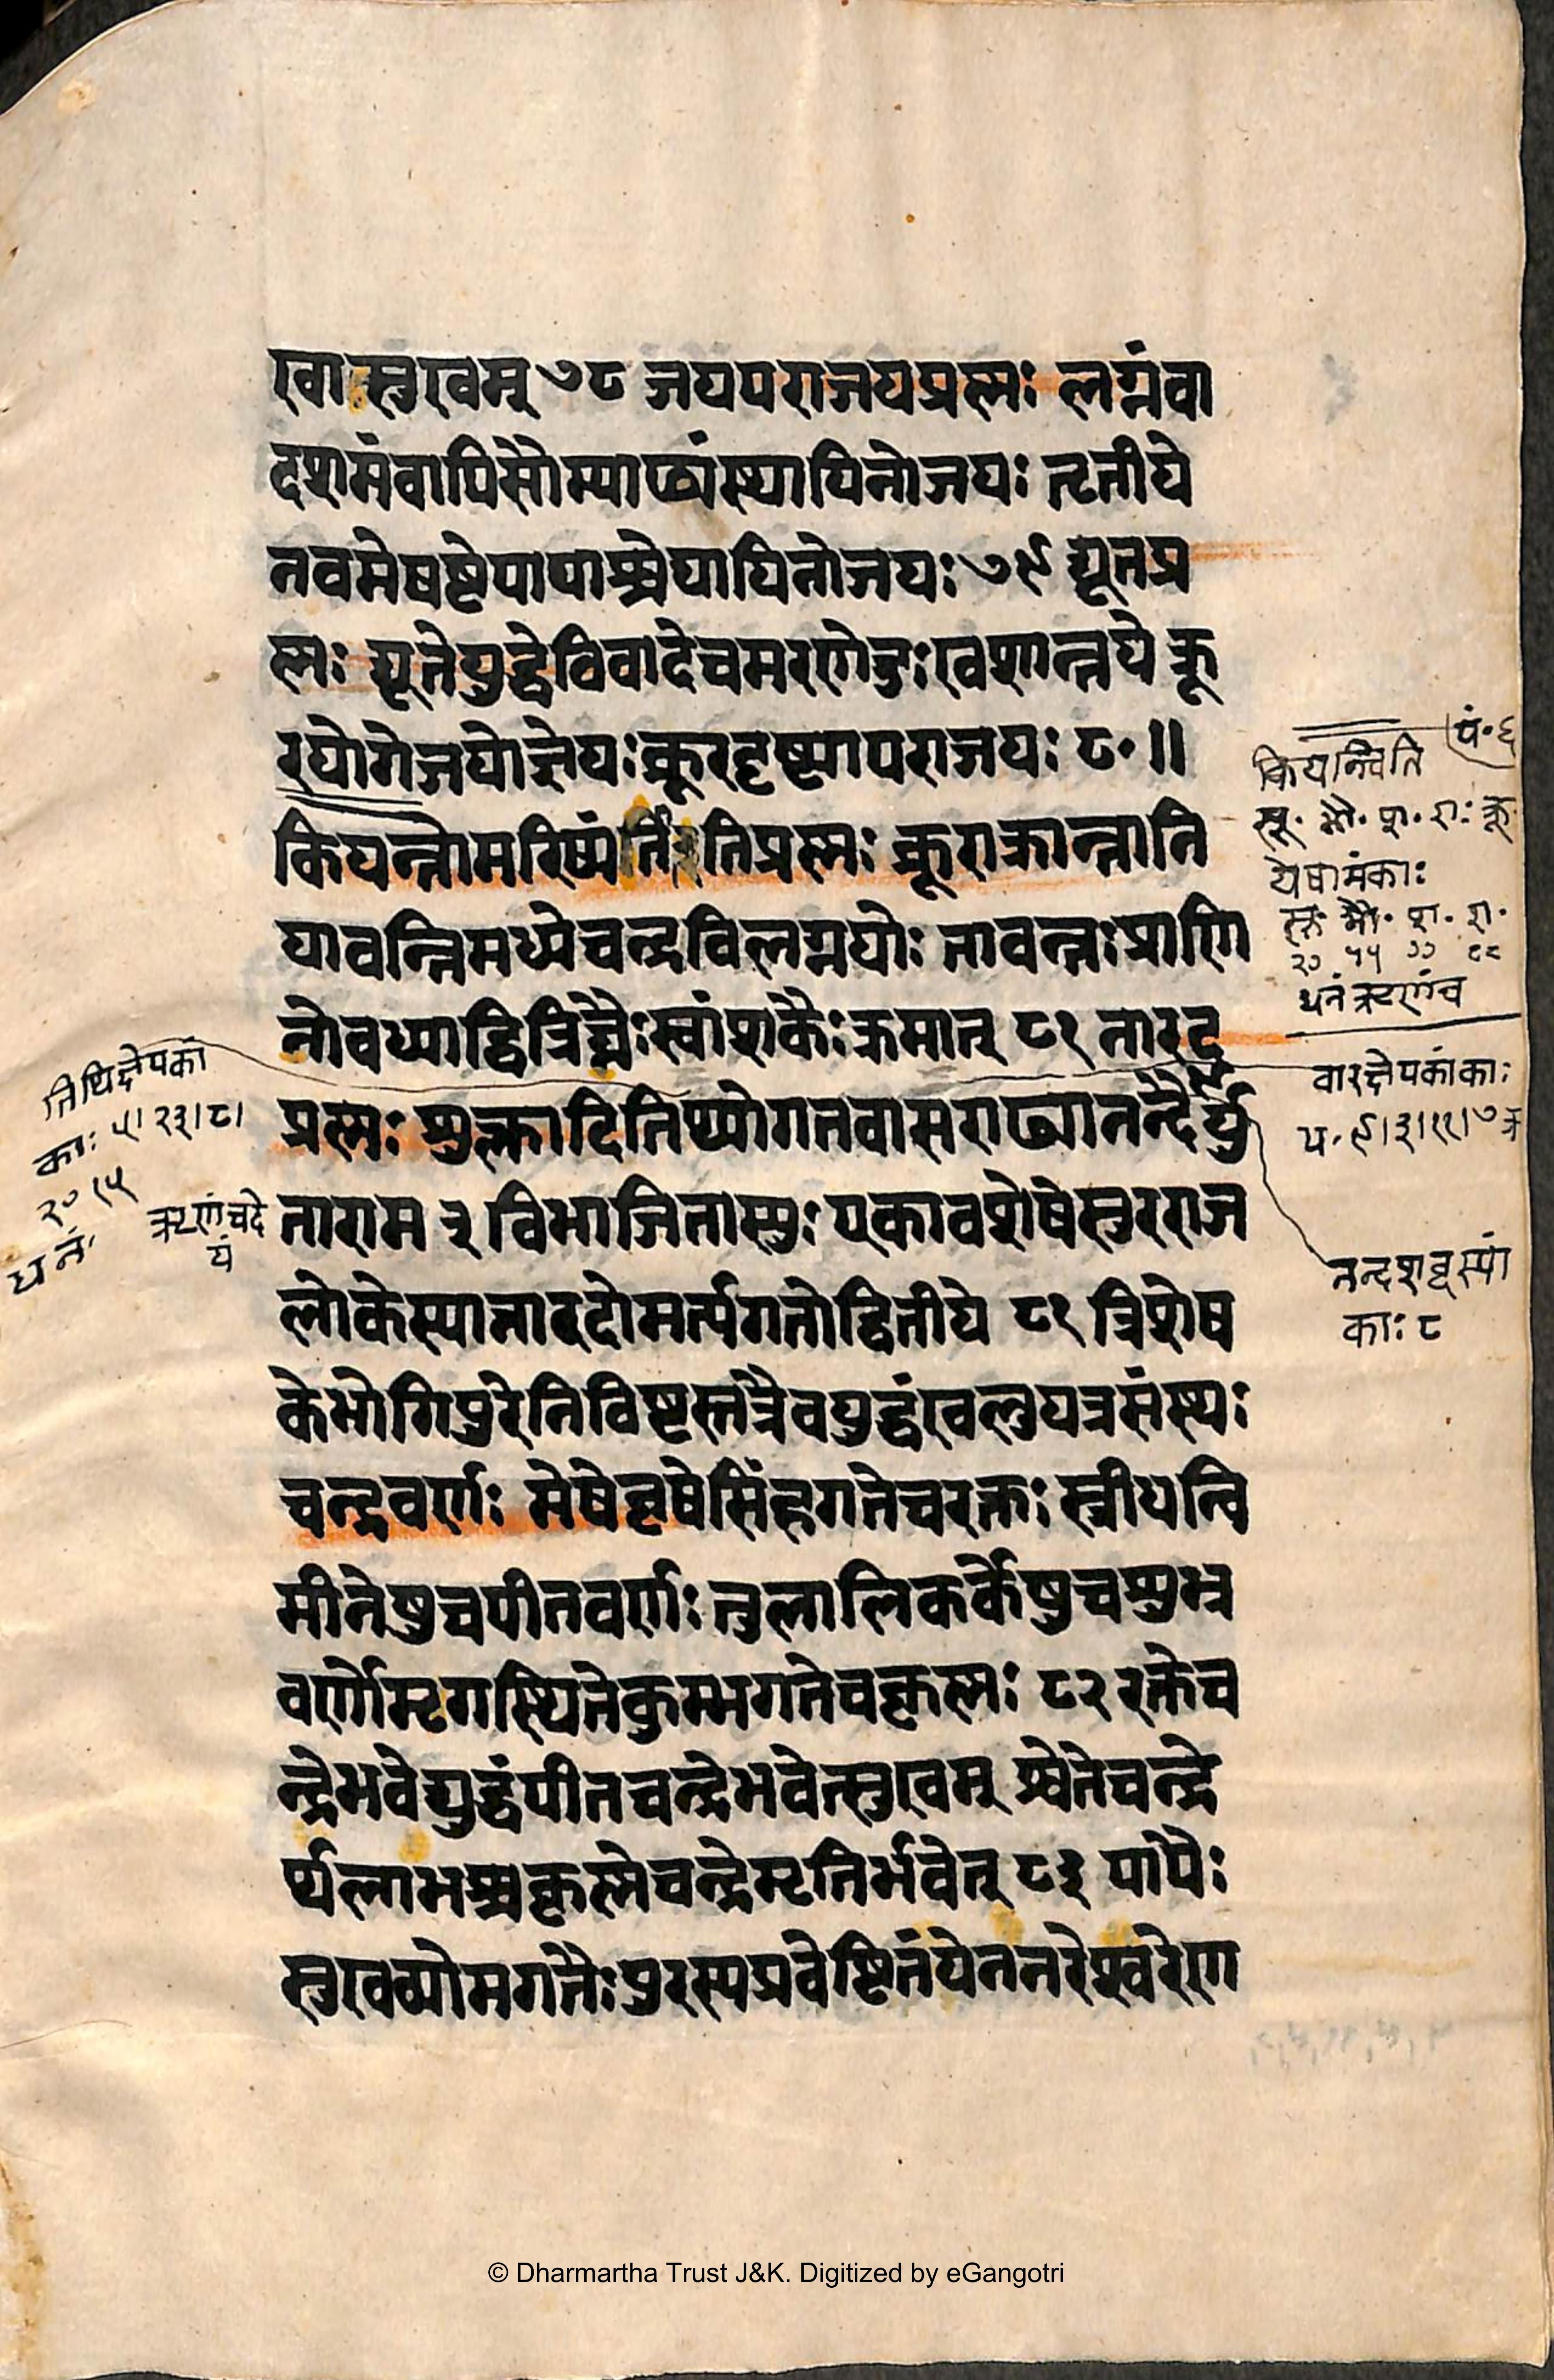 खा सुखम् ७८ जयपराजयप्रश्नः लग्नंवा
दशमंवापिसौम्याढ्यंस्थायिनोजयः तृतीये
नवमेषष्टेपापाश्चेद्यायिनोजयः ७९ द्यूतप्र
श्नः द्यूतेयुद्धेविवादेचमरणेदुःखशान्तये क्रू
रयोगेजयोज्ञेयःक्रूरदृष्ट्यापराजयः ८० ॥
कियन्तोमरिष्यंतीतिप्रश्नः क्रूराक्रान्तानि
यावन्तिमध्येचन्द्रविलग्नयोः तावन्तःप्राणि
नोवध्याद्वित्रिघ्नैःस्वांशकैःक्रमात् ८१ नारद
प्रश्नः शुक्लादितिथ्योगतवासराढ्यानन्दैर्यु
ताराम ३ विभाजितास्युः एकावशेषेसुरराज
लोकेस्यान्नारदोमर्त्यगतोद्वितीये ८१ त्रिशेष
केभोगिपुरेनिविष्टस्तत्रैवयुद्धंखलुयत्रसंस्थः
चन्द्रवर्णः मेषेवृषेसिंहगतेचरक्तः स्त्रीधन्वि
मीनेषुचपीतवर्णः तुलालिकर्केषुचशुभ्र
वर्णोमृगस्थितेकुम्भगतेचकृष्णः ८२ रक्तेच
न्द्रेभवेद्युद्धंपीतचन्द्रेभवेत्सुखम् श्वेतेचन्द्रे
र्थलाभश्चकृष्णेचन्द्रेमृतिर्भवेत् ८३ पापैः
सुखव्योमगतैःपुरस्यप्रवेष्टितंयेननरेश्वरेण
पं॰६
कियन्निवति
सू॰ भौ॰ श॰ राः क्रू
येषामंकाः
सू॰ भौ॰ श॰ रा॰
२० ५५ ११ ८८
धनंऋणंच
वारक्षेपकांकाः
प॰ ९।३।११।७
नन्दशब्दस्यां
काः ८
तिथिक्षेपकां
काः ५।२३।८।
२० १५
धनं॰ ऋणंचदे
यं
© Dharmartha Trust J&K. Digitized by eGangotri